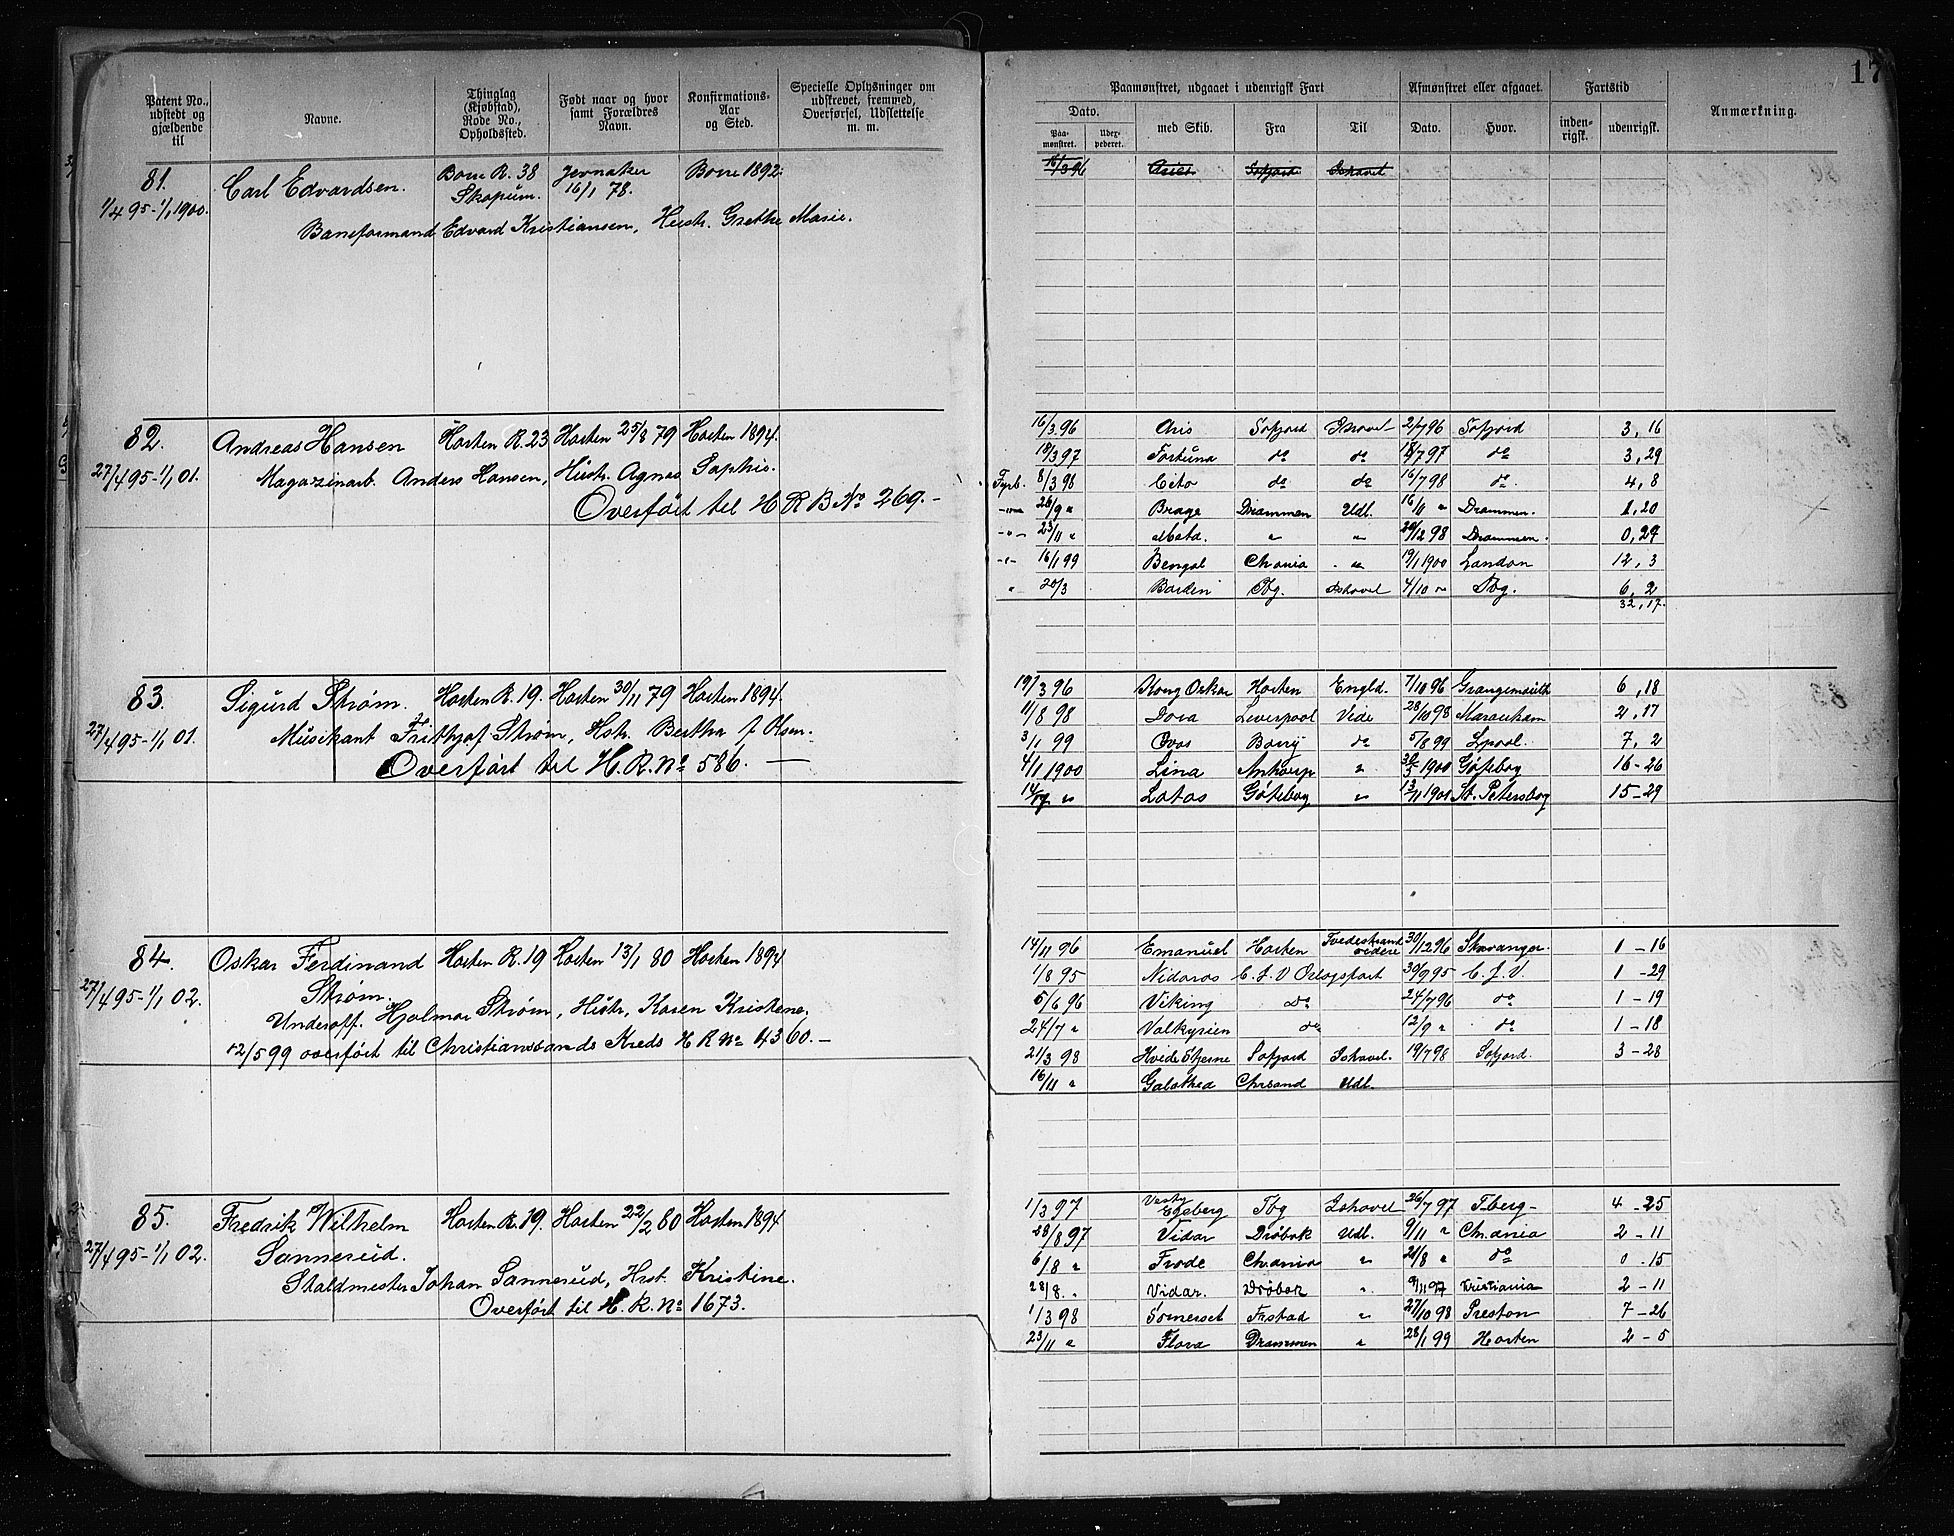 17
Patent No., udstedt og gjældende til
Navne.
Thinglag (Kjøbstad), Rode No., Opholdssted.
Født naar og hvor samt Forældres Navn.
Konfirmations-Aar og Sted.
Specielle Oplysninger om udskrevet, fremmed, Overførsel, Udslettelse m. m.
Paamønstret, udgaaet i udenrigsk Fart
Afmønstret eller afgaaet.
Fartstid
Anmærkning.
Dato.
Paa-mønstret.
Uder-pederet.
med Skib.
Fra
Til
Dato.
Hvor.
inden-rigsk.
udenrigsk.
81. Carl Edvardsen. Borre R. 38 Jevnaker Borre 1892.
1/4 95-1/1 1900. Skopum. 16/1 78.
Baneformand Edvard Kristiansen, Hustr. Grethe Marie.
16/3 96 Aries Sofjord Ishavet
82. Andreas Hansen Horten R. 23 Horten 25/8 79 Horten 1894.
27/4 95-1/1 01. Magazinarb. Anders Hansen, Hustr. Agnes Sophie.
Overført til H R B No 269.-
16/3 96 Aris Sofjord Ishavet 2/7 96 Sofjord 3, 16
18/3 97 Fortuna do do 18/7 97 do 3, 29
Fyrb. 8/3 98 Cito do do 16/7 98 do. 4, 8
26/9 " Brage Drammen Udl. 16/11 " Drammen. 1, 20
-"- 23/11 " Meta. " " 20/12 98 Drammen. 0, 27
-"- 16/1 99 Bengal Chania " 19/1 1900 London 12, 3
" 20/3 Tbg. Ishavet 4/10 " Tbg. 6, 2
32, 17.
83. Sigurd Strøm. Horten R. 19. Horten 30/11 79 Horten 1894.
27/4 95-1/1 01. Musikant Frithjof Strøm, Hstr. Bertha f. Olsen.
Overført til H. R. No 586. —
19/3 96 Kong Oskar Horten Engld. 7/10 96 Grangemouth 6, 18
11/8 98 Dora Liverpool Vide 28/10 98 2, 17
3/1 99 Barry do 5/8 99 Lpool. 7, 2
4/1 1900 Lina Antwerp " 30/5 1900 Gøteborg 16-26
14/7 " Lotos Gøteborg " 13/11 1901 St. Petersborg 15-29
84. Oskar Ferdinand Horten R. 19 Horten 13/1 80 Horten 1894
27/4 95-1/1 02. Strøm.
Underoff. Hjalmar Strøm, Hustr. Karen Kristene.
12/5 99 overført til Christianssands Kreds H R No 4360.—
14/11 96 Emanuel Horten Tvedestrand videre 30/12 96 Stavanger. 1-16
1/8 95 Nidaros C. J. V Orlogsfart 30/9 95 C. J. V. 1-29
5/6 96 Viking do 24/7 96 do 1-19
24/7 " Valkyrien do 12/9 " do 1-18
21/3 98 Hvide Stjerne Sofjord Ishavet. 19/7 98 Sofjord. 3-28
16/11 " Galathea Chrsand Udl.
85. Fredrik Wilhelm Horten R. 19. Horten 22/2 80 Horten 1894
27/4 95-1/1 02. Sannerud.
Staldmester Johan Sannerud, Hust. Kristine.
Overført til H. R. No 1673.
1/3 97 Vesle Egeberg Tbg Ishavet 26/7 97 Tberg- 4-25
28/8 97 Vidar Drøbak Udl. 9/11 " Chania 2-11
6/8 " Frode Chania " 21/8 " do 0-15
28/8. " Vidar. Drøbak ". 9/11 97 Kristiania 2-11
1/3 98 Somerset Frstad " 27/10 98 Preston 7-26
23/11 " Flora Drammen " 28/1 99 Horten 2-5